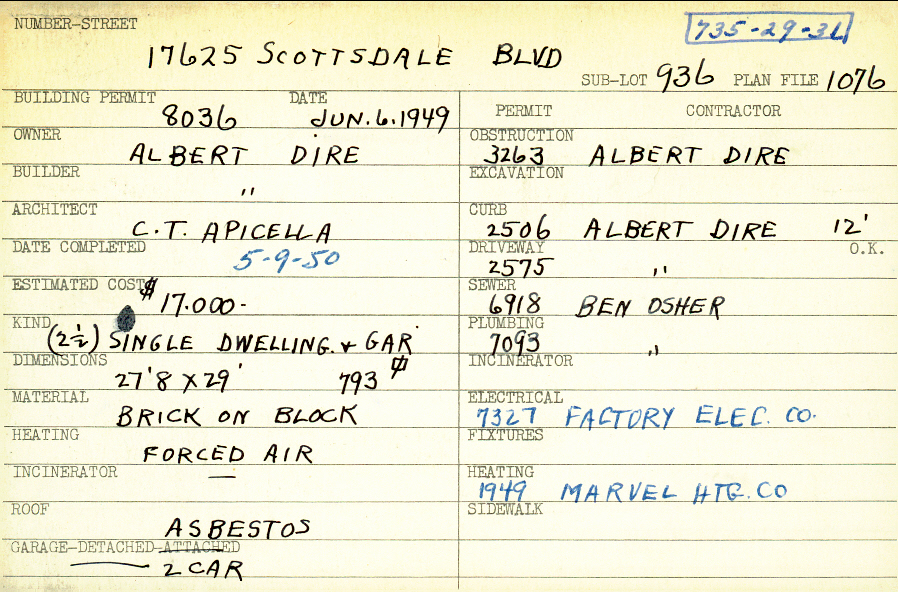 NUMBER-STREET
735-29-31
17625 SCOTTSDALE BLVD
SUB-LOT 936 PLAN FILE 1076
BUILDING PERMIT DATE
8036 JUN.6.1949
OWNER
ALBERT DIRE
BUILDER
"
ARCHITECT
C.T. APICELLA
DATE COMPLETED
5-9-50
ESTIMATED COST
$17.000-
KIND
(2½) SINGLE DWELLING. & GAR
DIMENSIONS
27'8 X 29' 793
MATERIAL
BRICK ON BLOCK
HEATING
FORCED AIR
INCINERATOR
—
ROOF
ASBESTOS
GARAGE-DETACHED-ATTACHED
2 CAR
PERMIT CONTRACTOR
OBSTRUCTION
3263 ALBERT DIRE
EXCAVATION
CURB
2506 ALBERT DIRE 12'
DRIVEWAY O.K.
2575 "
SEWER
6918 BEN OSHER
PLUMBING
7093 "
INCINERATOR
ELECTRICAL
7327 FACTORY ELEC. CO.
FIXTURES
HEATING
1949 MARVEL HTG. CO
SIDEWALK